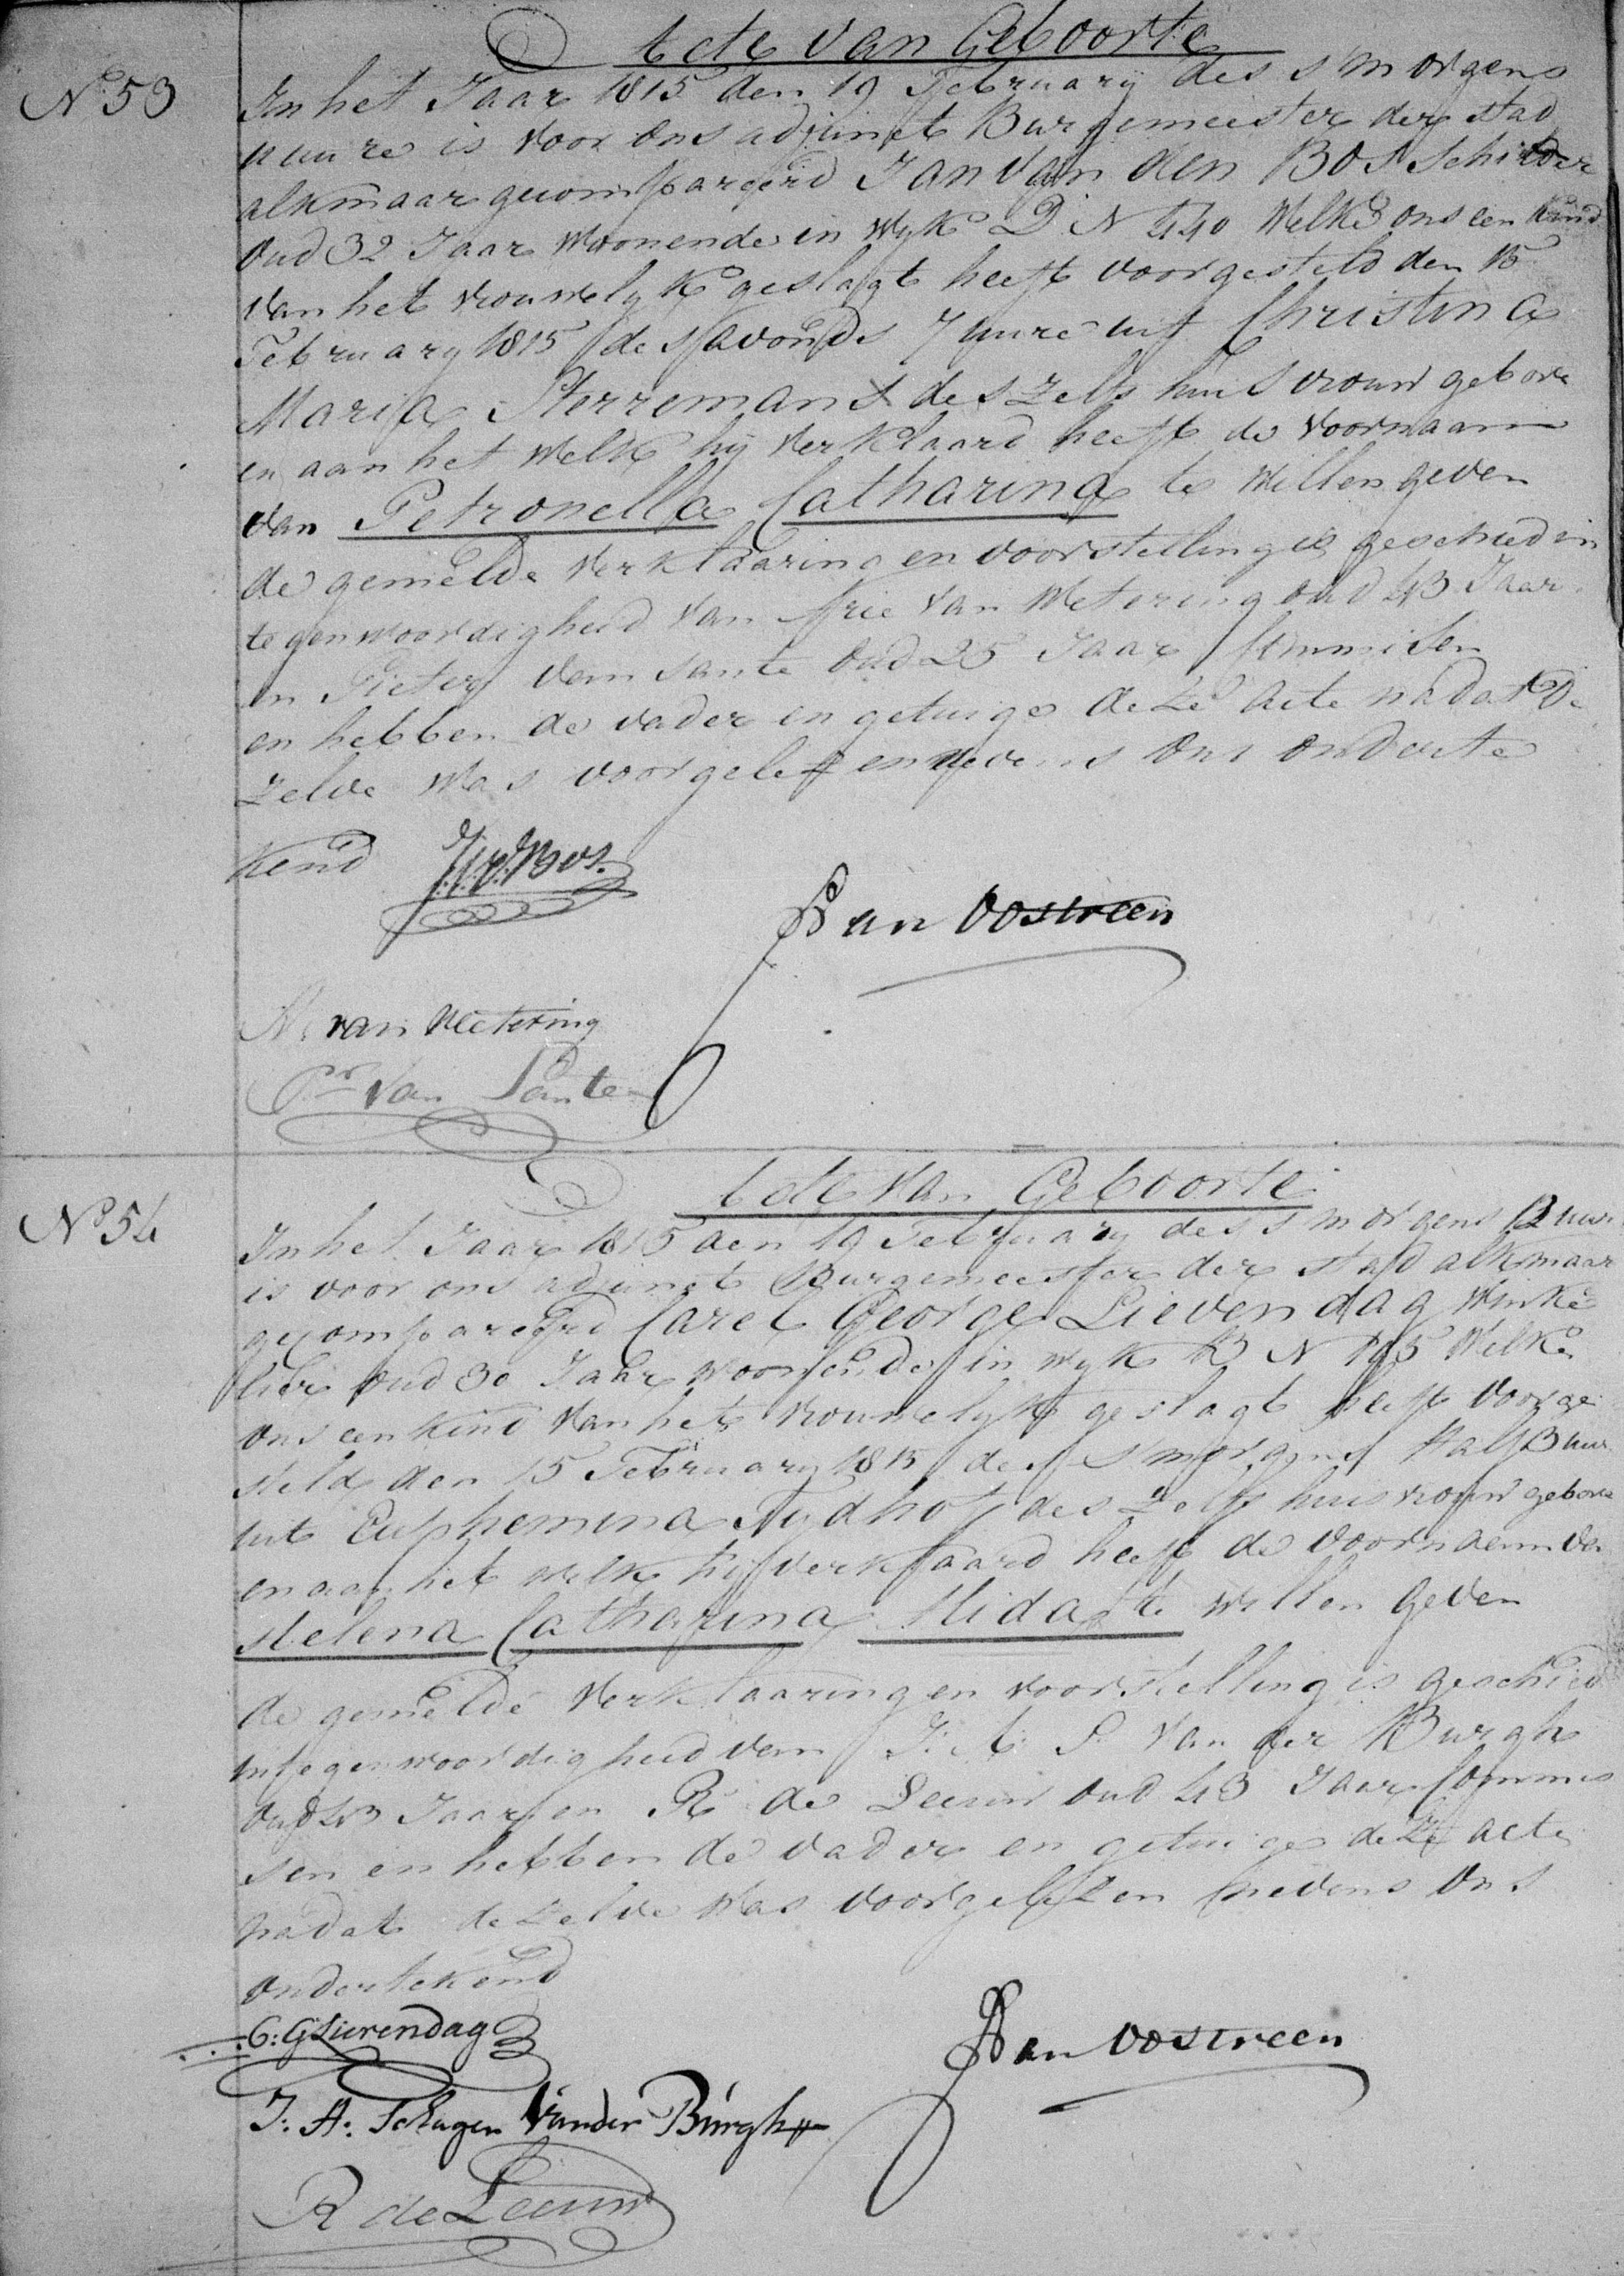 Acte van Geboorte
No 53
In het Jaar 1815 den 19 February des smorgens
uure is voor ons adjunct Burgemeester der stad
alkmaar gecompareerd Jan van den Bos Schilder
Oud 32 Jaar Woonende in Wyk D N 440 Welke ons een Kind
van het vrouwelyk geslagt heeft voorgesteld den 15
February 1815 des savonds 7 uure uit Christina
Maria Sterreman des zelfs huisvrouw gebore
en aan het Welk hij Verklaard heeft de Voornaam
van Petronella Catharina te Willen geven
de gemelde Verklaaring en voorstelling is geschied in
tegenwoordigheid van Arie van Wetering oud 43 Jaar
en Pieter van Sante Oud 25 Jaar Commisen
en hebben de vader en getuige deze Acte nadat de
zelve Was voorgelesen nevens Ons onderte
kend J.V.D.Bos.
P Van Oostveen
A. van Wetering
Pr Van Sante
Acte van Geboorte
No 54
In het Jaar 1815 den 19 February des smorgens 12 uur
is voor ons adjunct Burgemeester der stad alkmaar
gecompareerd Carel George Lievendag Winke
lier oud 30 Jaar woonende in wyk B N 195 Welke
ons een Kind van het Vrouwelyk geslagt heeft voorge
steld den 15 February 1815 des smorgens half 3 uur
uit Euphemina Nydhof des zelfs huisvrouw gebore
en aan het Welk hij verklaard heeft de voornaam van
Helena Catharina Alida te willen geven
de gemelde Verklaaring en voorstelling is geschied
in tegenwoordigheid van J. A. S. Van der Burgh
Oud 43 Jaar en R de Leeuw oud 43 Jaar Commis
sen en hebben de vader en getuige deze acte
nadat dezelve Was voorgelezen nevens Ons
ondertekend
C: G Lievendag
P Van Oostveen
J: A: Schagen Vander Burgh
R de Leeuw